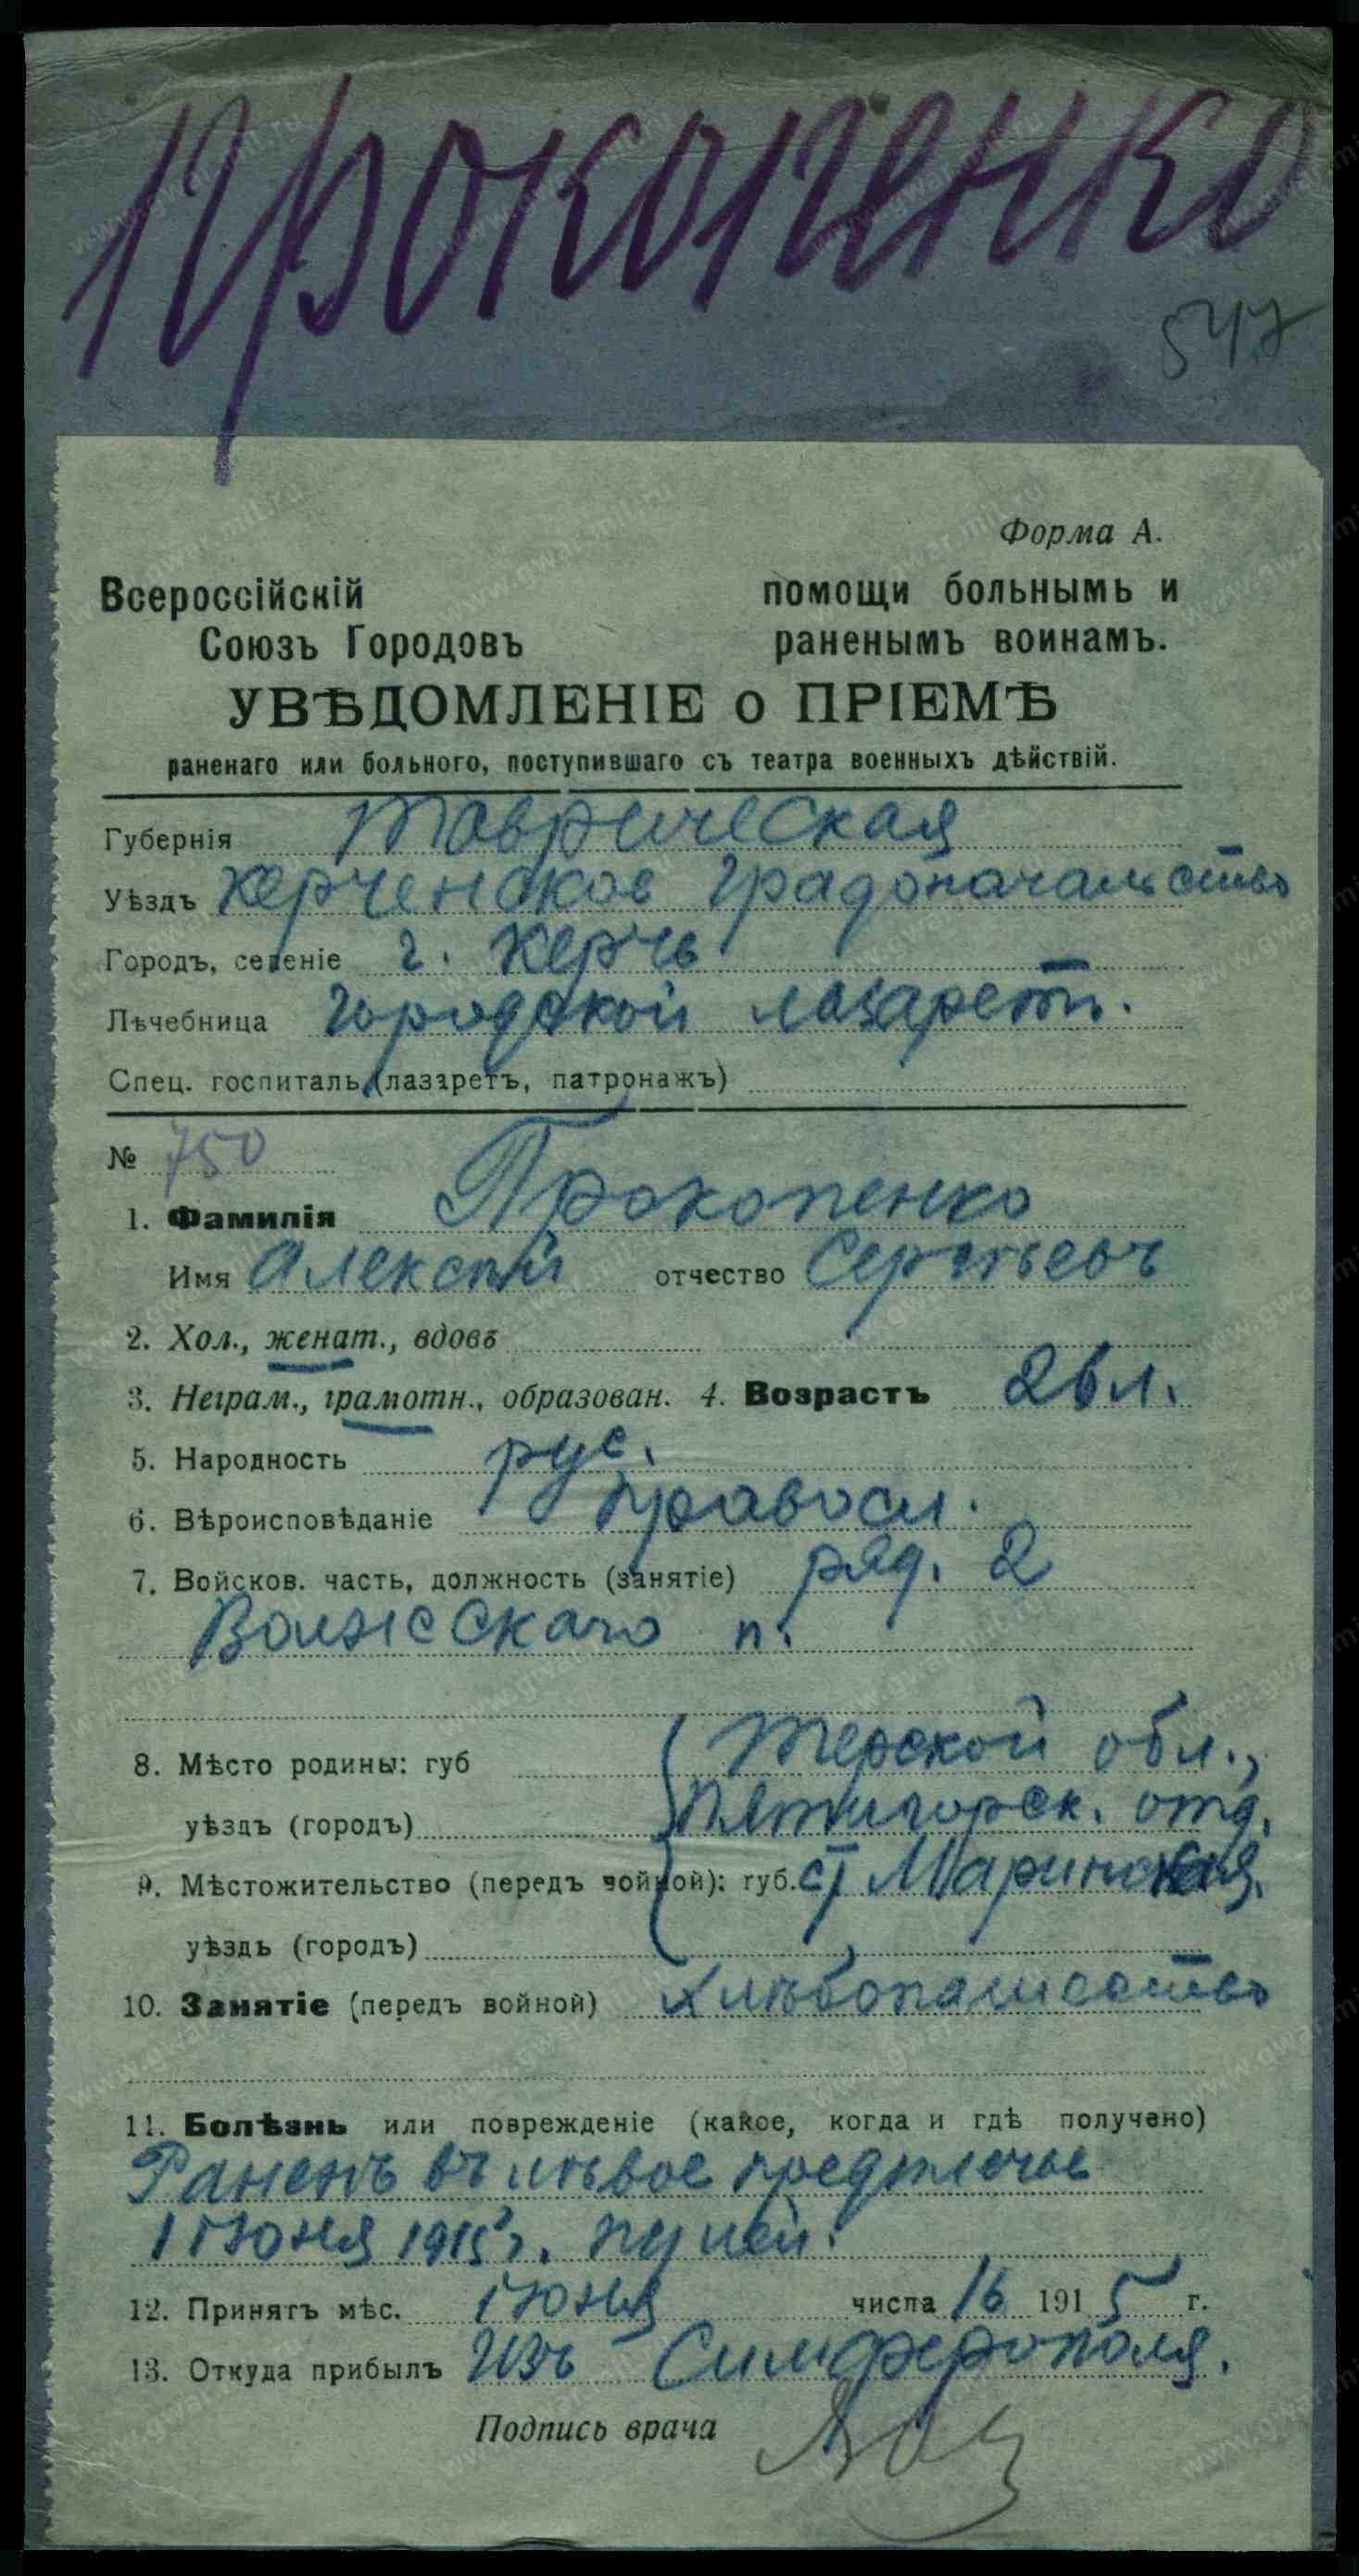 Прокопенко
547
Форма А.
Всероссійскій помощи больнымъ и
Союзъ Городовъ раненымъ воинамъ.
УВѢДОМЛЕНІЕ о ПРІЕМѢ
раненаго или больного, поступившаго съ театра военныхъ дѣйствій.
Губернія Таврическая
Уѣздъ Керченское градоначальство
Городъ, селеніе г. Керчь
Лѣчебница городской лазаретъ.
Спец. госпиталь, (лазаретъ, патронажъ)
№ 750
1. Фамилія Прокопенко
Имя Алексѣй отчество Сергѣевъ
2. Хол., женат., вдовъ
3. Неграм., грамотн., образован. 4. Возрастъ 26 л.
5. Народность рус.
6. Вѣроисповѣданіе правосл.
7. Войсков. часть, должность (занятіе) ряд. 2
Волжскаго п.
8. Мѣсто родины: губ Терской обл.,
уѣздъ (городъ) Пятигорск. отд.
9. Мѣстожительство (передъ войной): губ. ст Маринская
уѣздъ (городъ)
10. Занятіе (передъ войной) хлѣбопашество
11. Болѣзнь или поврежденіе (какое, когда и гдѣ получено)
Раненъ въ лѣвое предплечье
1 іюня 1915 г. пулей.
12. Принятъ мѣс. іюня числа 16 1915 г.
13. Откуда прибылъ изъ Симферополя.
Подпись врача
www.gwar.mil.ru